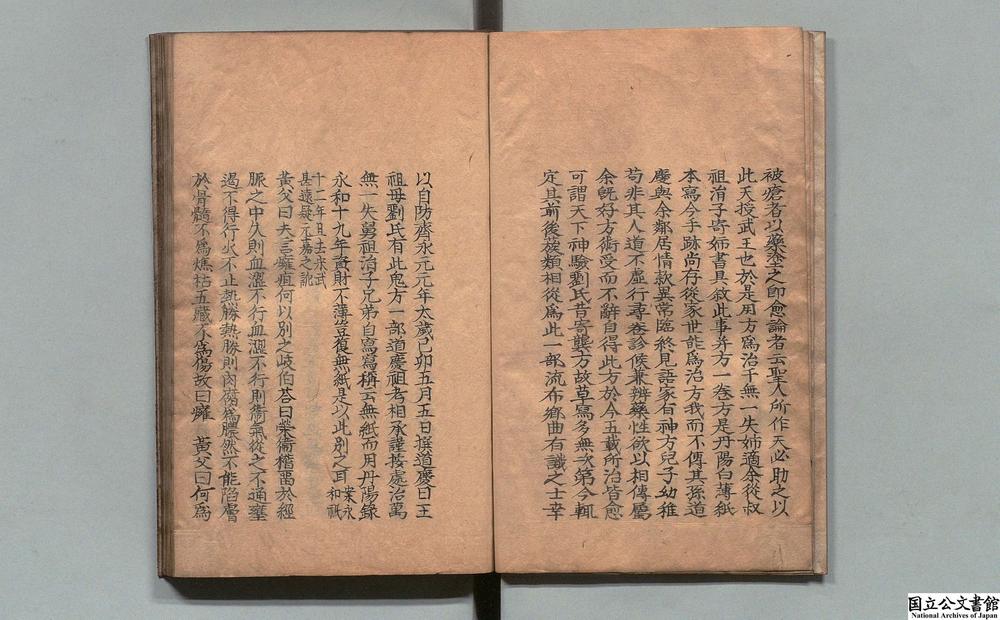 被瘡者以藥塗之即愈論者云聖人所作天必助之以
此天授武王也於是用方爲治千無一失姉適余從叔
祖涓子寄姉書具敘此事并方一卷方是丹陽白薄紙
本寫今手跡尚存從家世能爲治方我而不傳其孫道
慶與余鄰居情款異常臨終見語家有神方兒子幼稚
苟非其人道不虛行尋卷診候兼辨藥性欲以相傳屬
余既好方術受而不辭自得此方於今五載所治皆愈
可謂天下神驗劉氏昔寄龔方故草寫多無次第今輒
定其前後蔟類相從爲此一部流布鄉曲有識之士幸
以自防齊永元元年太歲己卯五月五日撰道慶曰王
祖母劉氏有此鬼方一部道慶祖考相承謹按處治萬
無一失舅祖治子兄弟自寫寫稱云無紙而用丹陽錄
永和十九年資財不薄豈復無紙是以此別之耳業永和秖
十二年且去宋武甚遠疑元嘉之訛
黃父曰夫言癰疽何以別之岐伯荅曰榮衛稽畱於經
脈之中久則血澀不行血澀不行則衛氣從之不通壅
遏不得行火不止熱勝熱勝則肉腐爲膿然不能陷膚
於骨髓不爲燋枯五臟不爲傷故曰癰 黃父曰何爲
国立公文書館
National Archives of Japan